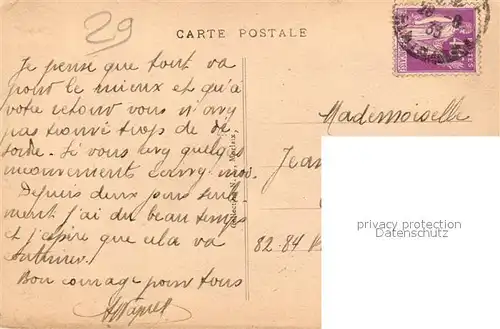 29
CARTE POSTALE
Je pense que tout va
pour le mieux et qu'à
votre retour vous n'avez
pas trouvé trop de dé
sordre. Si vous avez quelques
mouvements
Depuis deux jours seule
ment j'ai du beau temps
et j'espère que cela va
continuer.
Bon courage pour tous
Mademoiselle
Jean
82-84
privacy protection
Datenschutz